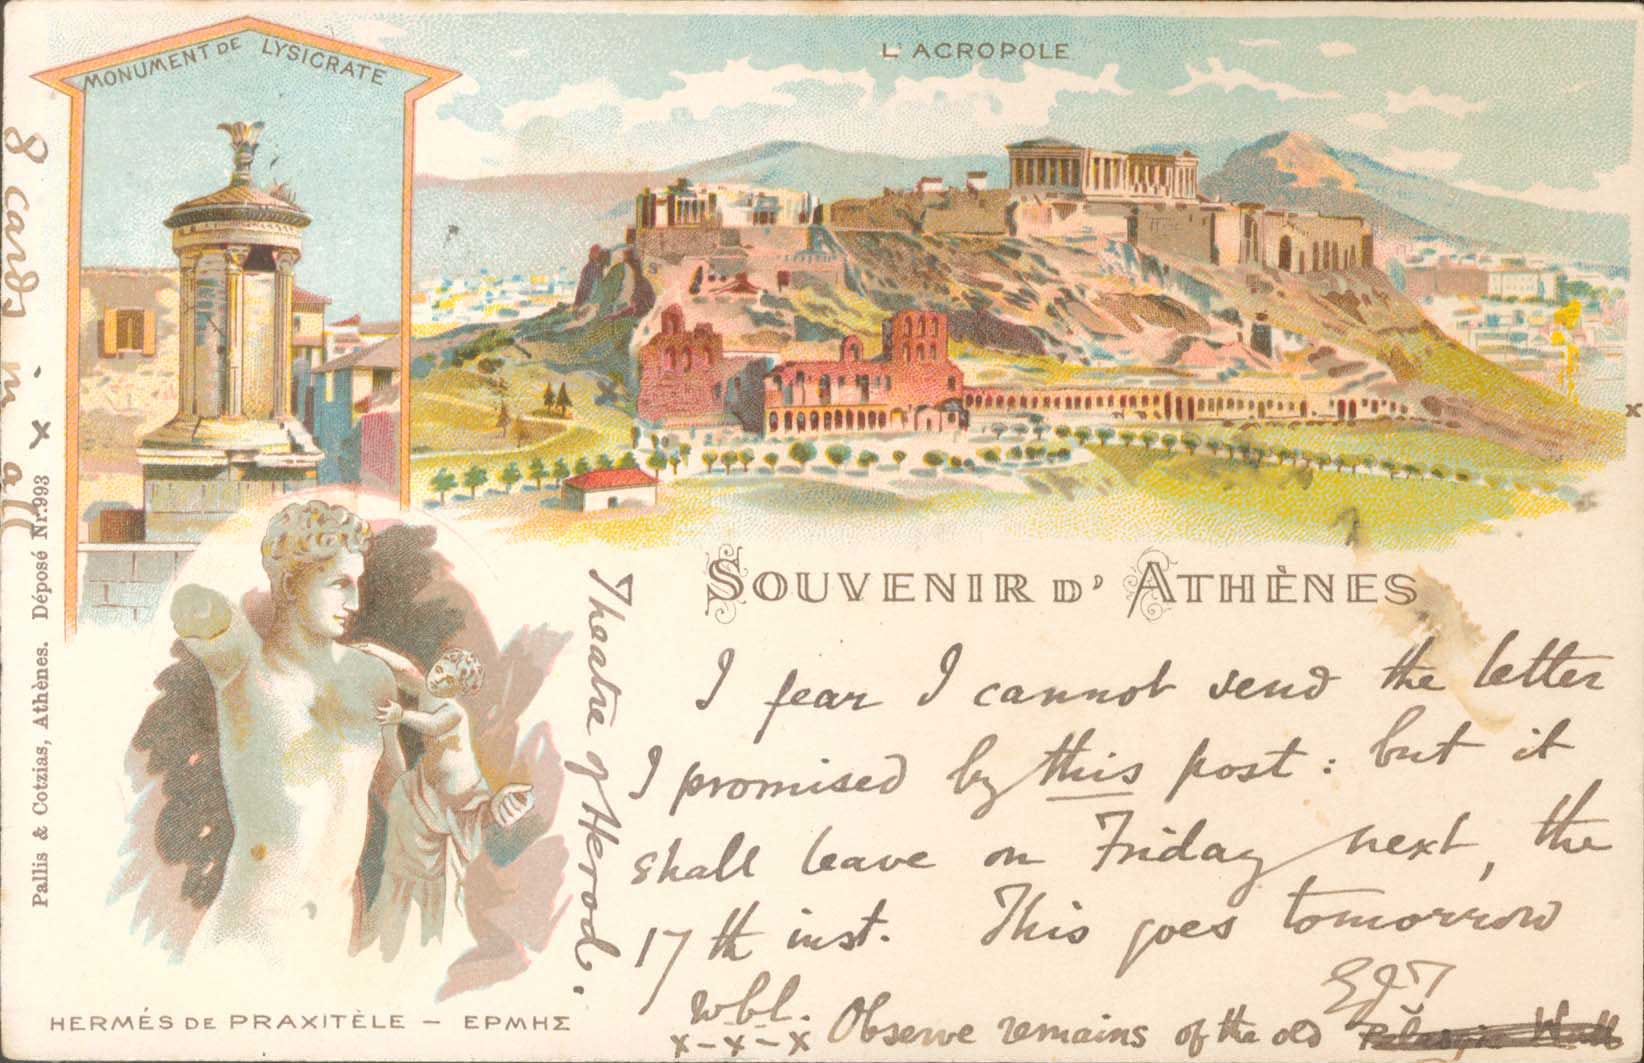 MONUMENT DE LYSICRATE
L'ACROPOLE
8 cards in all
x
x
Pallis & Cotzias, Athènes. Déposé Nr. 993
SOUVENIR D' ATHÈNES
Theatre of Herod.
I fear I cannot send the letter
I promised by this post: but it
shall leave on Friday next, the
17th inst. This goes tomorrow
EJT
wbl.
x-x-x Observe remains of the old
HERMÉS DE PRAXITÈLE – ΕΡΜΗΣ